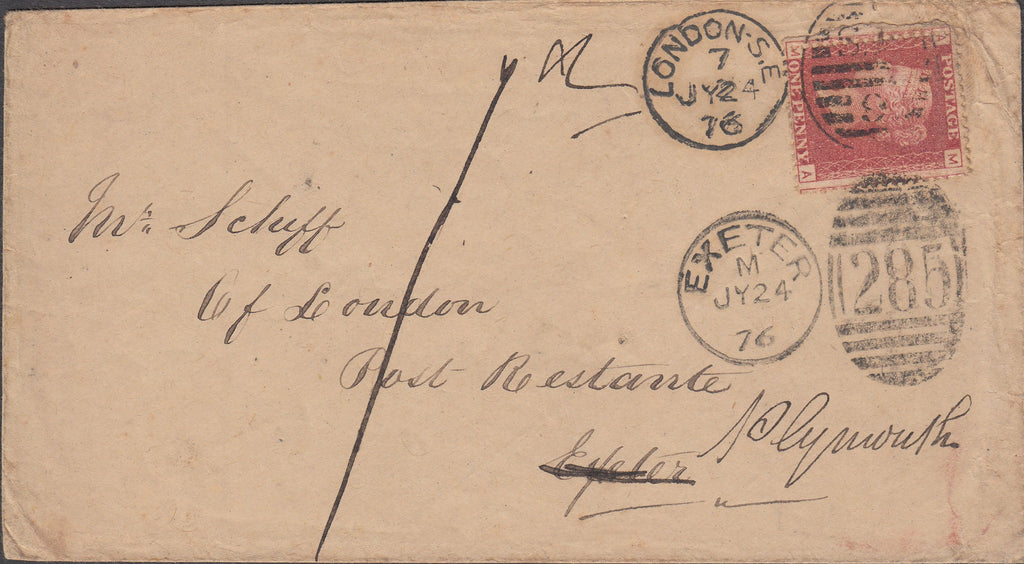 LONDON-S.E
7
JY24
76
A POSTAGE M
M ONE PENNY A
EXETER
M
JY24
76
285
Mr. Schiff
Of London
Post Restante
Exeter Plymouth